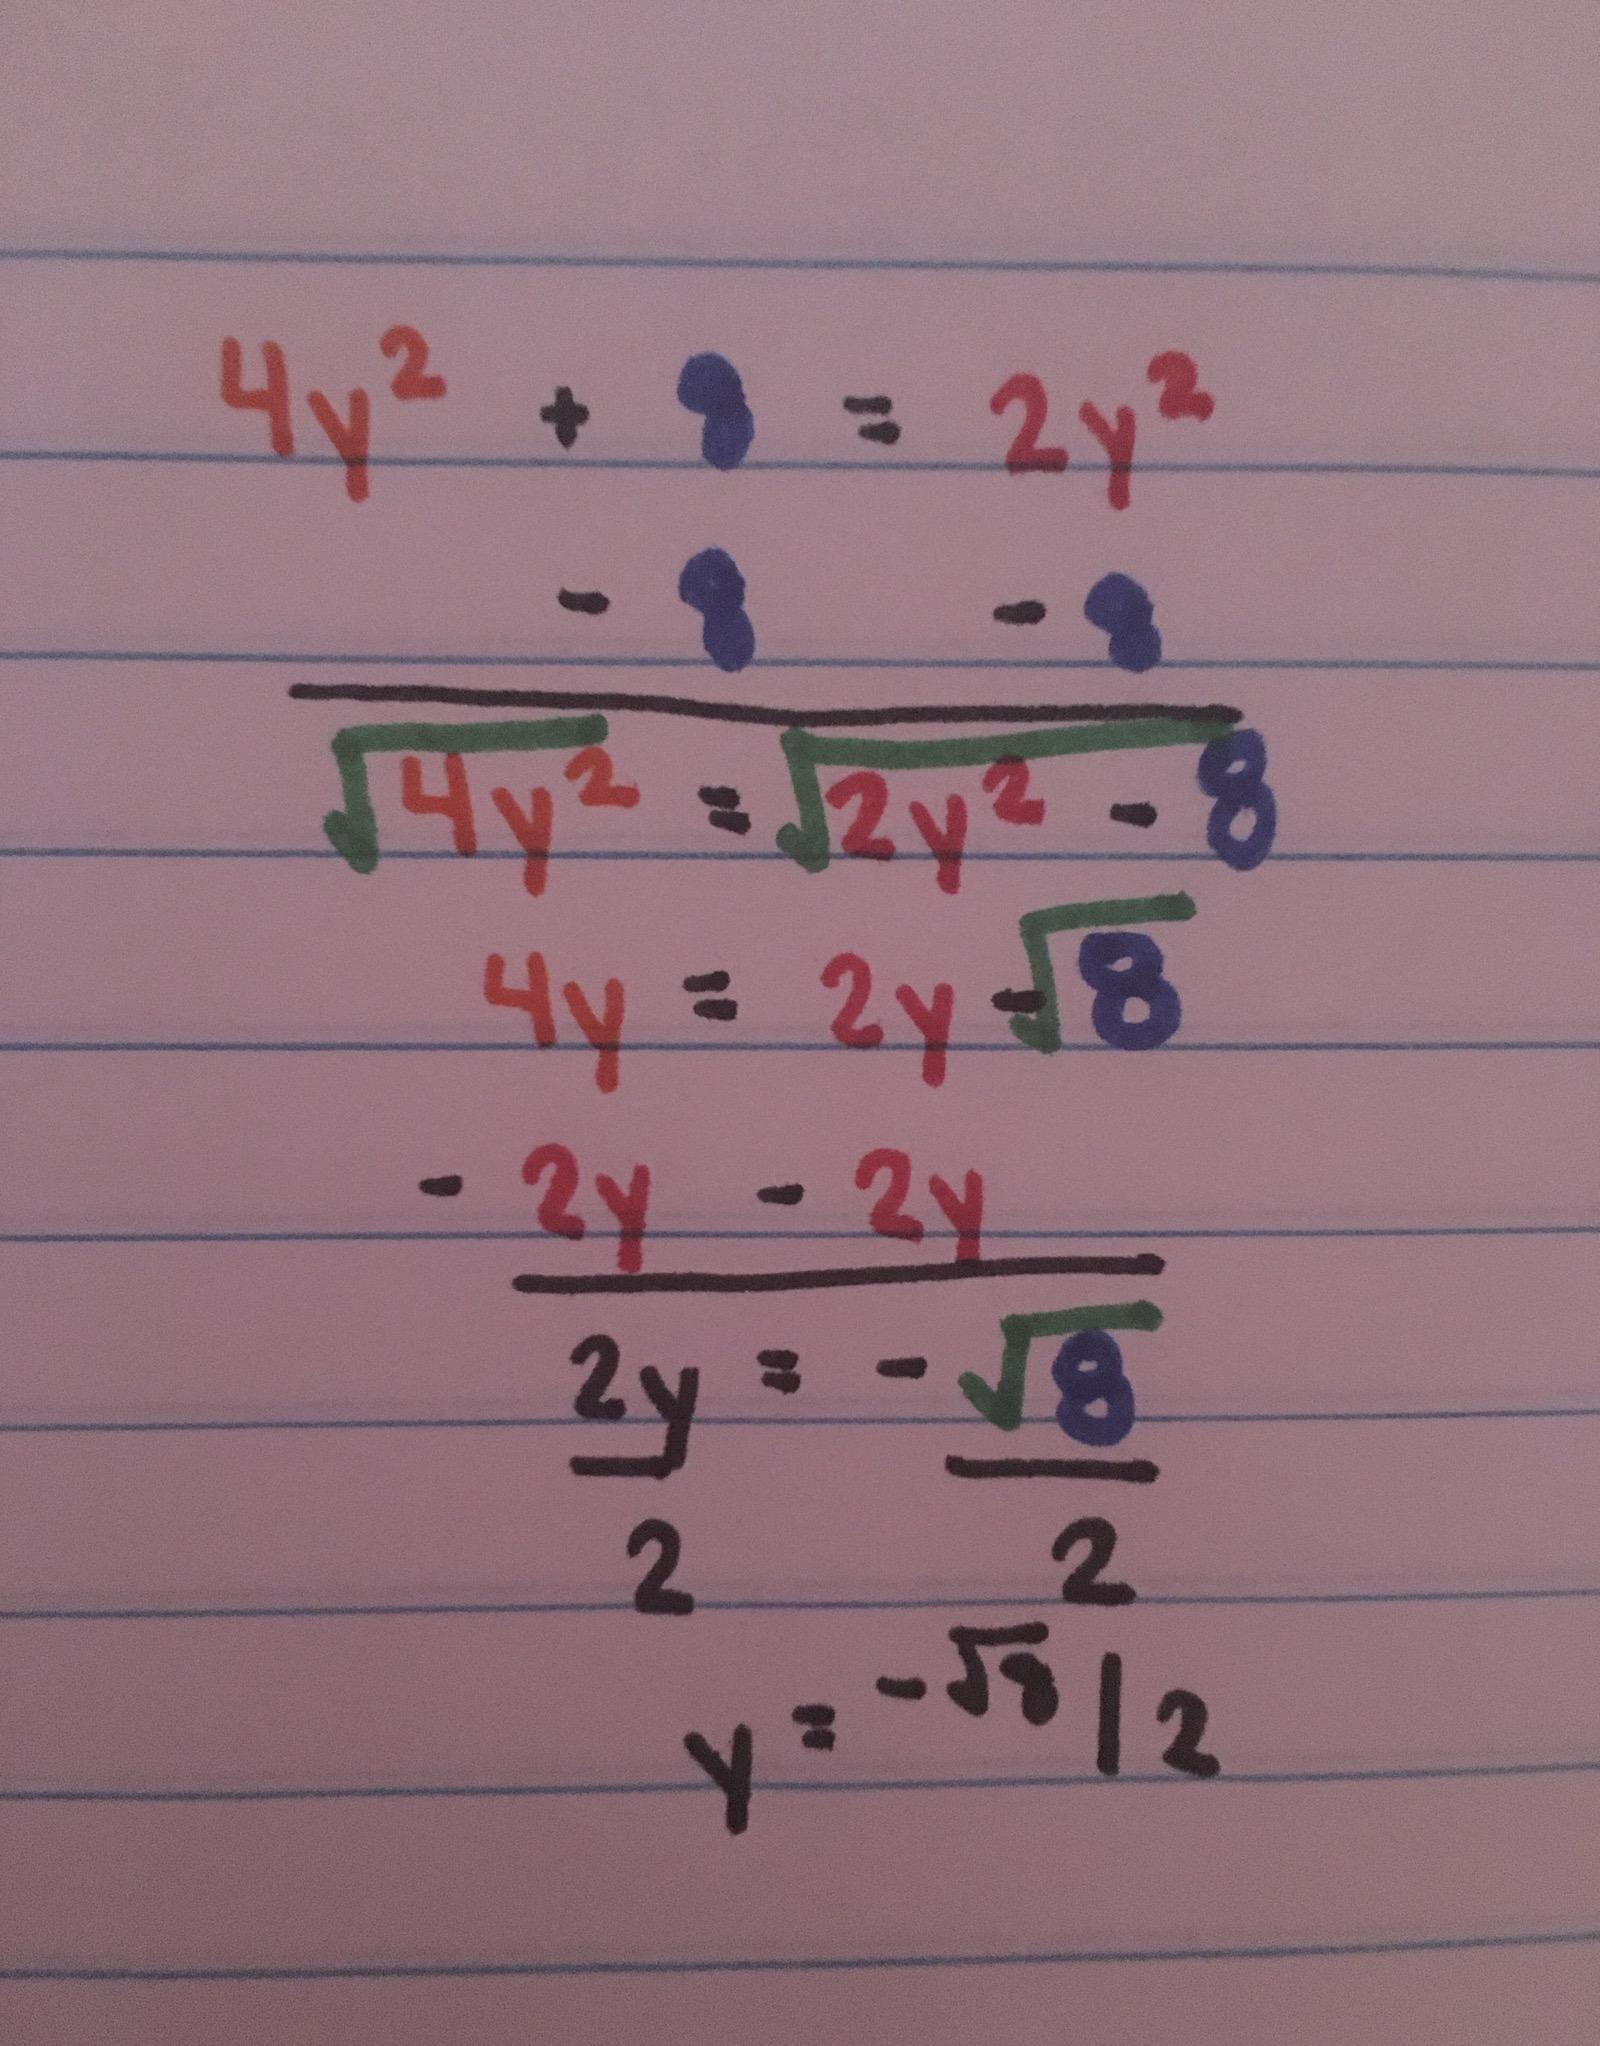 4y² + 8 = 2y²
- 8 - 8
√4y² = √2y² - 8
4y = 2y - √8
- 2y - 2y
2y = - √8
2 2
y = -√8 / 2